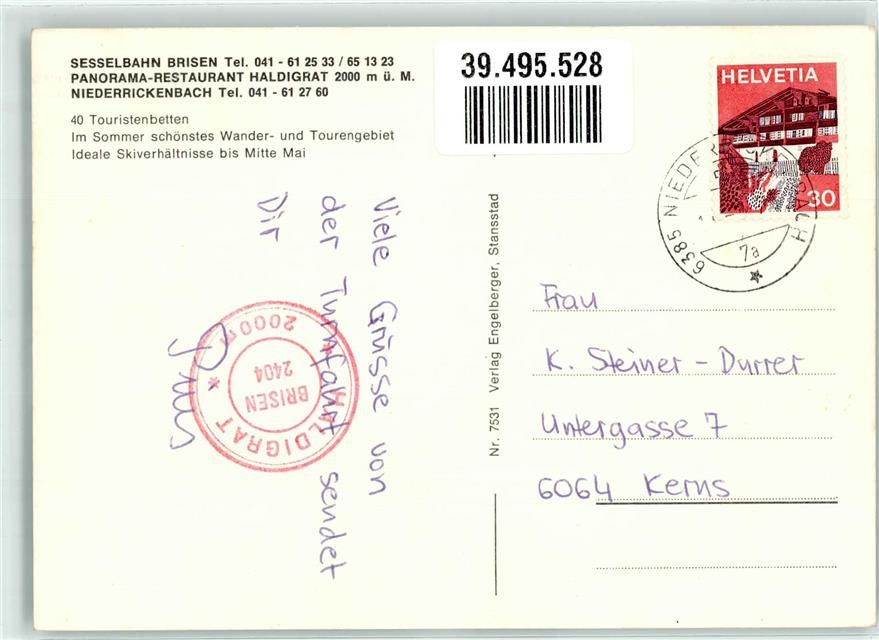 SESSELBAHN BRISEN Tel. 041 - 61 25 33 / 65 13 23
PANORAMA-RESTAURANT HALDIGRAT 2000 m ü. M.
NIEDERRICKENBACH Tel. 041 - 61 27 60
40 Touristenbetten
Im Sommer schönstes Wander- und Tourengebiet
Ideale Skiverhältnisse bis Mitte Mai
39.495.528
HELVETIA
30
6385 NIEDERRICKENBACH
7a
Viele Grüsse von
der Turnfahrt sendet
Dir
HALDIGRAT * 2000 m *
BRISEN
2404
Nr. 7531 Verlag Engelberger, Stansstad
Frau
K. Steiner - Durrer
Untergasse 7
6064 Kerns